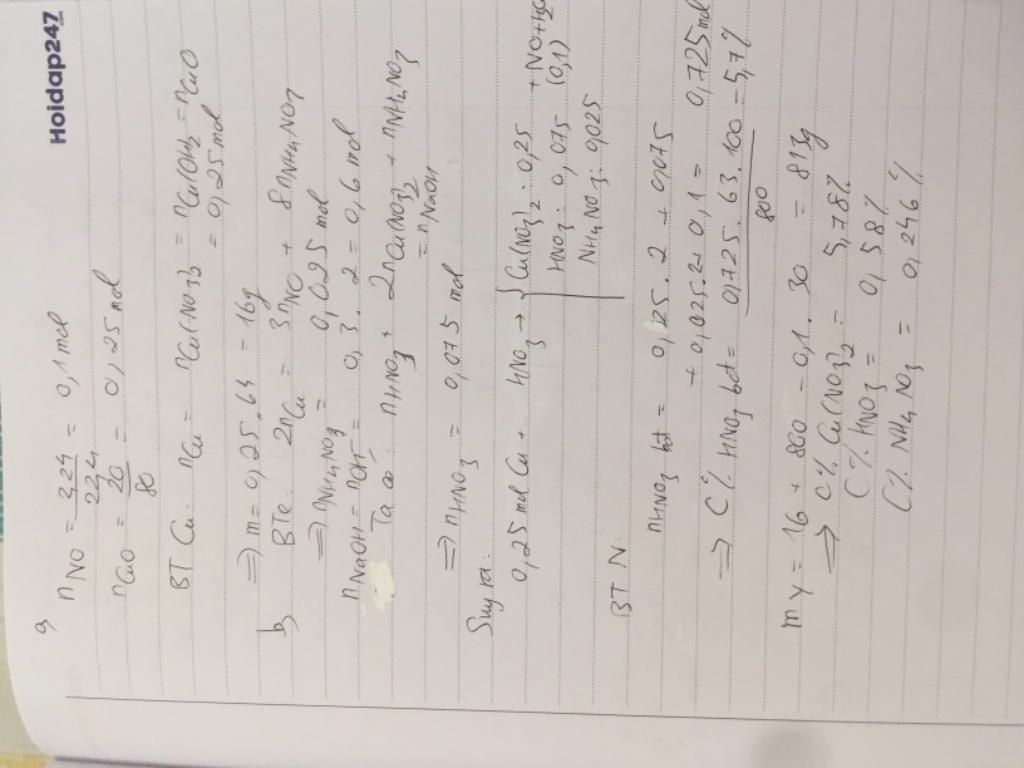 Hoidap247
a,
nNO = 2,24/22,4 = 0,1 mol
nCuO = 20/80 = 0,25 mol
BT Cu: nCu = nCu(NO3)2 = nCu(OH)2 = nCuO
= 0,25 mol
=> m = 0,25.64 = 16g
b, BTe: 2nCu = 3nNO + 8nNH4NO3
=> nNH4NO3 = 0,025 mol
nNaOH = nOH- = 0,3.2 = 0,6 mol
Ta có: nHNO3 + 2nCu(NO3)2 + nNH4NO3
= nNaOH
=> nHNO3 = 0,075 mol
Suy ra:
0,25 mol Cu + HNO3 → { Cu(NO3)2: 0,25 + NO + H2O
HNO3: 0,075 (0,1)
NH4NO3: 0,025
BT N:
nHNO3 bđ = 0,25.2 + 0,075
+ 0,025.2 + 0,1 = 0,725 mol
=> C% HNO3 bđ = 0,725.63.100/800 = 5,7%
mY = 16 + 800 - 0,1.30 = 813g
=> C% Cu(NO3)2 = 5,78%
C% HNO3 = 0,58%
C% NH4NO3 = 0,246%